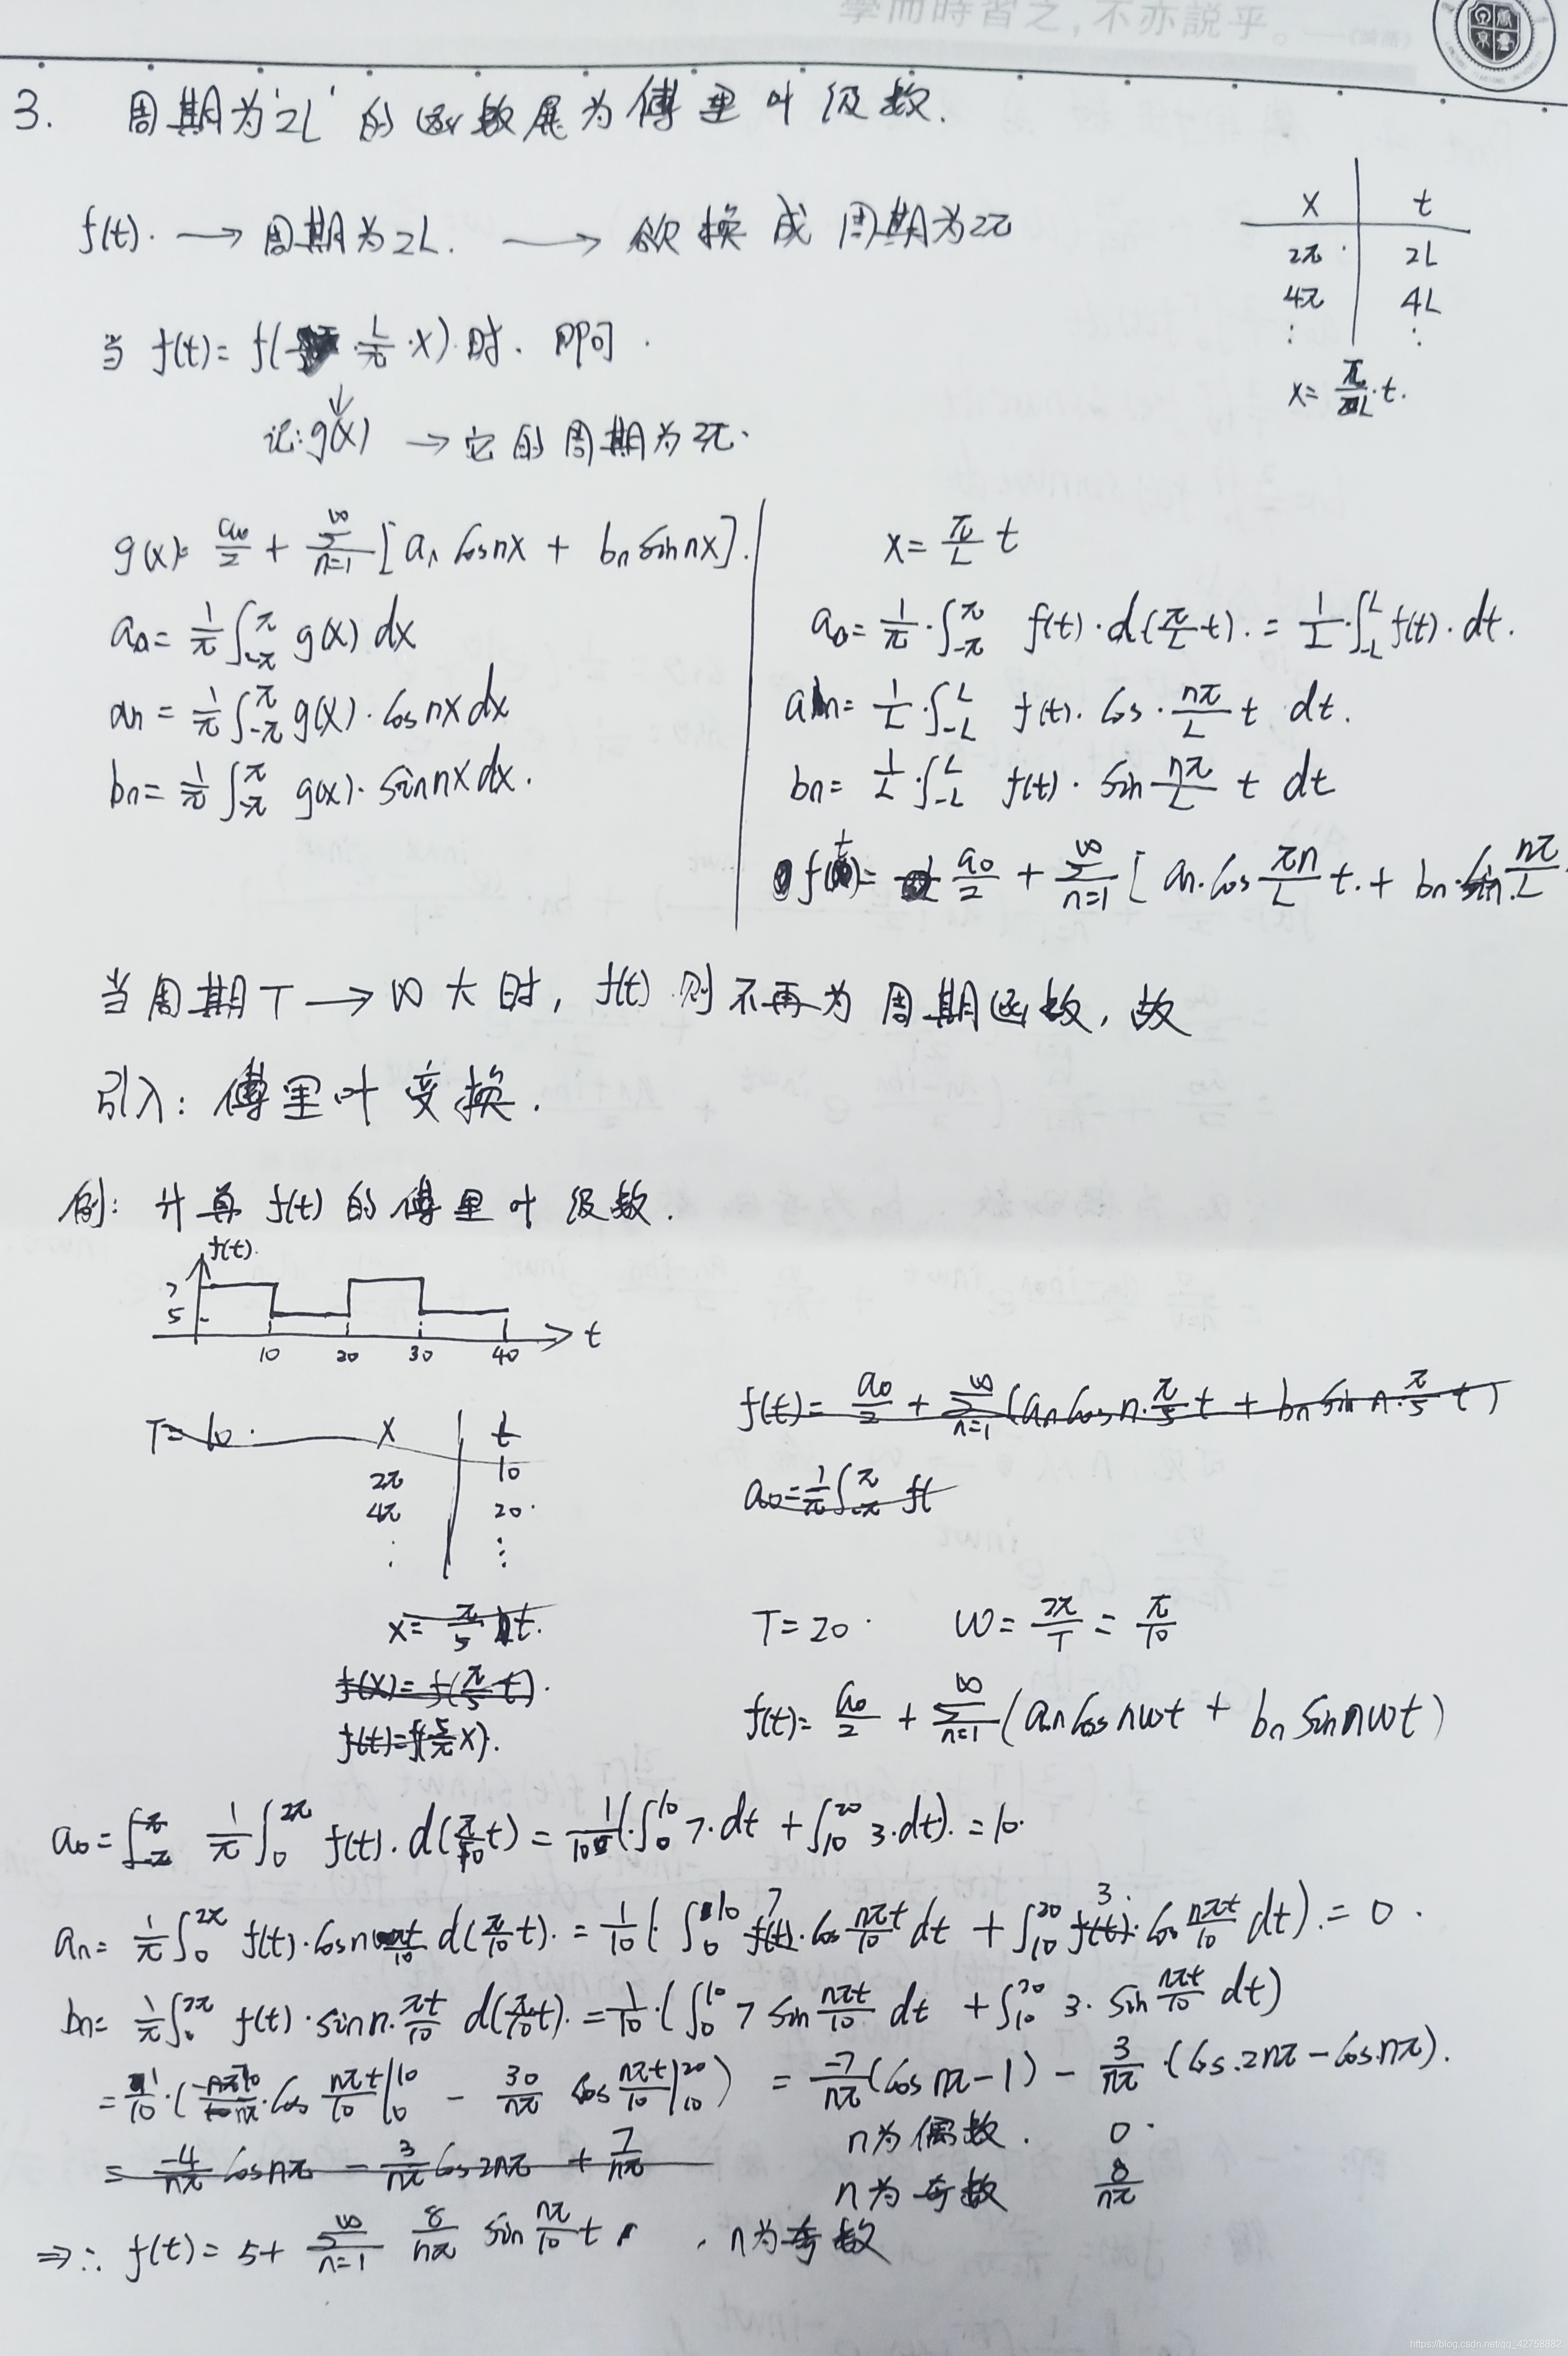 學而時習之，不亦説乎。——《論語》
3. 周期为“2L”的函数展为傅里叶级数.
f(t). → 周期为2L. → 欲换成周期为2π
x | t
2π | 2L
4π | 4L
⋮ | ⋮
x = π/L · t.
当 f(t) = f( · L/π · x) 时. 即可.
记: g(x) → 它的周期为2π.
g(x) = a0/2 + ∑_{n=1}^{∞} [an cos nx + bn sin nx].
a0 = 1/π ∫_{-π}^{π} g(x) dx
an = 1/π ∫_{-π}^{π} g(x) · cos nx dx
bn = 1/π ∫_{-π}^{π} g(x) · sin nx dx.
x = π/L t
a0 = 1/π · ∫_{-π}^{π} f(t) · d(π/L t). = 1/L · ∫_{-L}^{L} f(t) · dt.
an = 1/L · ∫_{-L}^{L} f(t) · cos · nπ/L t dt.
bn = 1/L · ∫_{-L}^{L} f(t) · sin nπ/L t dt
f(t) = a0/2 + ∑_{n=1}^{∞} [an · cos πn/L t. + bn · sin nπ/L ·
当周期 T → ∞ 大时, f(t) 则不再为周期函数, 故
引入: 傅里叶变换.
例: 计算 f(t) 的傅里叶级数.
f(t).
7
5
10 20 30 40 t
T = 10.
x | t
2π | 10
4π | 20.
⋮ | ⋮
x = π/5 t.
f(x) = f(π/5 t).
f(t) = f(5/π x).
f(t) = a0/2 + ∑_{n=1}^{∞} (an cos n · π/5 t + bn sin n · π/5 t)
a0 = 1/π ∫_{-π}^{π} f(
T = 20. ω = 2π/T = π/10
f(t) = a0/2 + ∑_{n=1}^{∞} (an cos nωt + bn sin nωt)
a0 = ∫_{-π}^{π} 1/π ∫_{0}^{2π} f(t) · d(π/10 t) = 1/10 (∫_{0}^{10} 7 · dt + ∫_{10}^{20} 3 · dt). = 10.
an = 1/π ∫_{0}^{2π} f(t) · cos nπt/10 d(π/10 t). = 1/10 ( · ∫_{0}^{10} 7 f(t) · cos nπt/10 dt + ∫_{10}^{20} 3 · f(t) · cos nπt/10 dt). = 0.
bn = 1/π ∫_{0}^{2π} f(t) · sin n · πt/10 d(π/10 t). = 1/10 · (∫_{0}^{10} 7 sin nπt/10 dt + ∫_{10}^{20} 3 · sin nπt/10 dt)
= 1/10 · (-70/nπ · cos nπt/10 |_{0}^{10} - 30/nπ cos nπt/10 |_{10}^{20}) = -7/nπ (cos nπ - 1) - 3/nπ · (cos · 2nπ - cos nπ).
= -4/nπ cos nπ - 3/nπ cos 2nπ + 7/nπ
n为偶数. 0.
n为奇数 8/nπ
⇒ ∴ f(t) = 5 + ∑_{n=1}^{∞} 8/nπ sin nπ/10 t , n为奇数
https://blog.csdn.net/qq_42758882